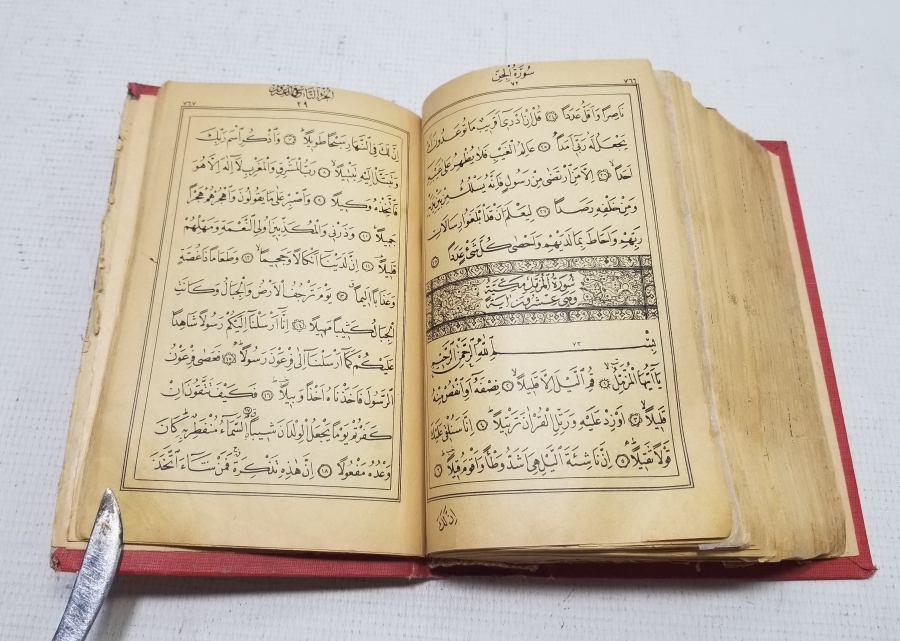 ٧٦٦
سُورَةُ الْجِنّ
٧٢
نَاصِرًا وَأَقَلُّ عَدَدًا ﴿٢٤﴾ قُلْ إِنْ أَدْرِىٓ أَقَرِيبٌ مَا تُوعَدُونَ أَمْ
يَجْعَلُ لَهُ رَبِّىٓ أَمَدًا ﴿٢٥﴾ عَالِمُ الْغَيْبِ فَلَا يُظْهِرُ عَلٰى غَيْبِهِ
أَحَدًا ﴿٢٦﴾ إِلَّا مَنِ ارْتَضٰى مِنْ رَسُولٍ فَإِنَّهُ يَسْلُكُ مِنْ بَيْنِ يَدَيْهِ
وَمِنْ خَلْفِهِ رَصَدًا ﴿٢٧﴾ لِيَعْلَمَ أَنْ قَدْ أَبْلَغُوا رِسَالَاتِ
رَبِّهِمْ وَأَحَاطَ بِمَا لَدَيْهِمْ وَأَحْصٰى كُلَّ شَىْءٍ عَدَدًا ﴿٢٨﴾
سُورَةُ الْمُزَّمِّلِ مَكِّيَّةٌ
وَهِىَ عِشْرُونَ آيَةً
٧٣
بِسْمِ اللّٰهِ الرَّحْمٰنِ الرَّحِيمِ
يَآ أَيُّهَا الْمُزَّمِّلُ ﴿١﴾ قُمِ الَّيْلَ إِلَّا قَلِيلًا ﴿٢﴾ نِصْفَهُٓ أَوِ انْقُصْ مِنْهُ
قَلِيلًا ﴿٣﴾ أَوْ زِدْ عَلَيْهِ وَرَتِّلِ الْقُرْاٰنَ تَرْتِيلًا ﴿٤﴾ إِنَّا سَنُلْقِى عَلَيْكَ
قَوْلًا ثَقِيلًا ﴿٥﴾ إِنَّ نَاشِئَةَ الَّيْلِ هِىَ أَشَدُّ وَطْأً وَأَقْوَمُ قِيلًا ﴿٦﴾
إِنَّ لَكَ
٧٦٧
٢٩
إِنَّ لَكَ فِى النَّهَارِ سَبْحًا طَوِيلًا ﴿٧﴾ وَاذْكُرِ اسْمَ رَبِّكَ
وَتَبَتَّلْ إِلَيْهِ تَبْتِيلًا ﴿٨﴾ رَبُّ الْمَشْرِقِ وَالْمَغْرِبِ لَآ إِلٰهَ إِلَّا هُوَ
فَاتَّخِذْهُ وَكِيلًا ﴿٩﴾ وَاصْبِرْ عَلٰى مَا يَقُولُونَ وَاهْجُرْهُمْ هَجْرًا
جَمِيلًا ﴿١٠﴾ وَذَرْنِى وَالْمُكَذِّبِينَ أُولِى النَّعْمَةِ وَمَهِّلْهُمْ
قَلِيلًا ﴿١١﴾ إِنَّ لَدَيْنَآ أَنْكَالًا وَجَحِيمًا ﴿١٢﴾ وَطَعَامًا ذَا غُصَّةٍ
وَعَذَابًا أَلِيمًا ﴿١٣﴾ يَوْمَ تَرْجُفُ الْأَرْضُ وَالْجِبَالُ وَكَانَتِ
الْجِبَالُ كَثِيبًا مَهِيلًا ﴿١٤﴾ إِنَّآ أَرْسَلْنَآ إِلَيْكُمْ رَسُولًا شَاهِدًا
عَلَيْكُمْ كَمَآ أَرْسَلْنَآ إِلٰى فِرْعَوْنَ رَسُولًا ﴿١٥﴾ فَعَصٰى فِرْعَوْنُ
الرَّسُولَ فَأَخَذْنَاهُ أَخْذًا وَبِيلًا ﴿١٦﴾ فَكَيْفَ تَتَّقُونَ إِنْ
كَفَرْتُمْ يَوْمًا يَجْعَلُ الْوِلْدَانَ شِيبًا ﴿١٧﴾ السَّمَآءُ مُنْفَطِرٌ بِهِ كَانَ
وَعْدُهُ مَفْعُولًا ﴿١٨﴾ إِنَّ هٰذِهِ تَذْكِرَةٌ فَمَنْ شَآءَ اتَّخَذَ